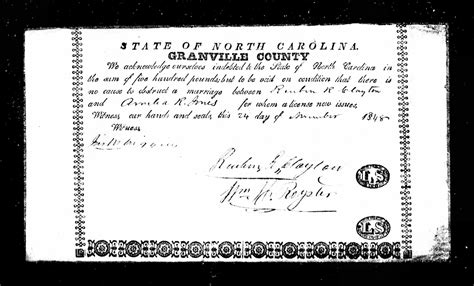 STATE OF NORTH CAROLINA.
GRANVILLE COUNTY
We acknowledge ourselves indebted to the State of North Carolina in
the sum of five hundred pounds, but to be void on condition that there is
no cause to obstruct a marriage between Reuben R. Clayton
and R. Jones for whom a license now issues.
Witness our hands and seals, this 24 day of November 1848
Witness
Reuben Clayton
LS
Wm H. Royster
LS